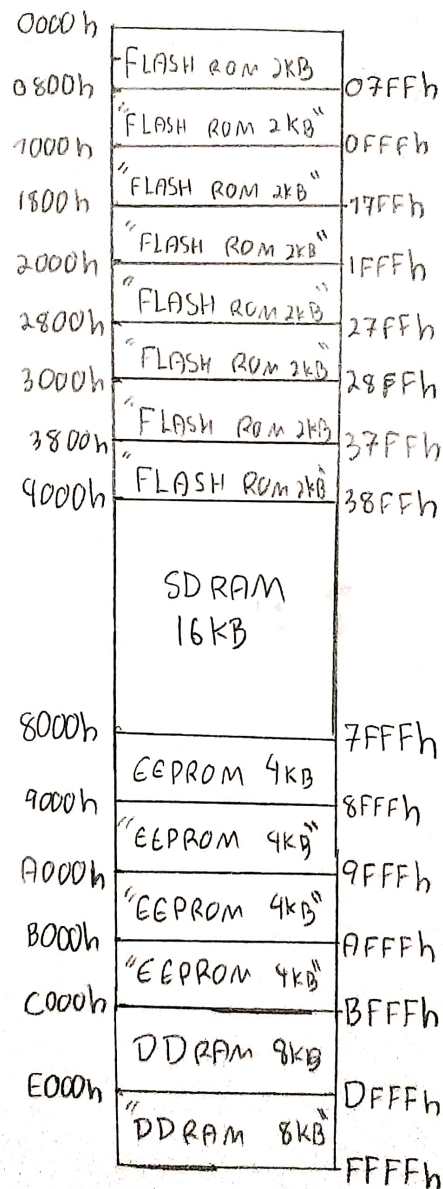 0000h
FLASH ROM 2KB
0800h 07FFh
"FLASH ROM 2KB"
1000h 0FFFh
"FLASH ROM 2KB"
1800h 17FFh
"FLASH ROM 2KB"
2000h 1FFFh
"FLASH ROM 2KB"
2800h 27FFh
"FLASH ROM 2KB"
3000h 28FFh
"FLASH ROM 2KB
3800h 37FFh
"FLASH ROM 2KB"
4000h 38FFh
SDRAM
16KB
8000h 7FFFh
EEPROM 4KB
9000h 8FFFh
"EEPROM 4KB"
A000h 9FFFh
"EEPROM 4KB"
B000h AFFFh
"EEPROM 4KB"
C000h BFFFh
DDRAM 8KB
E000h DFFFh
"DDRAM 8KB"
FFFFh